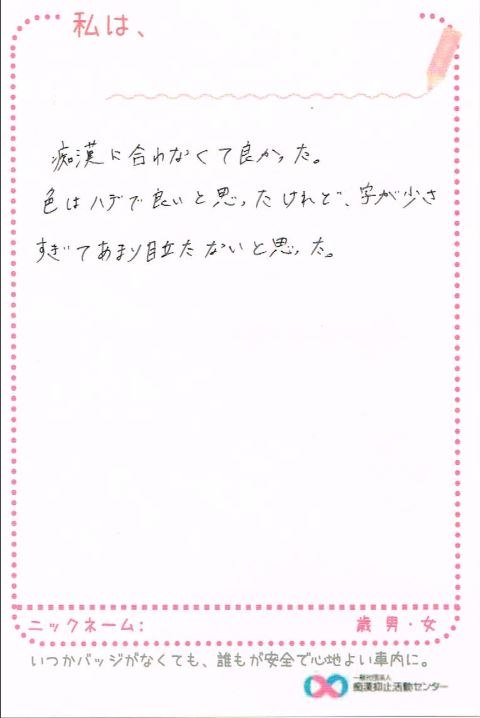 私は、
痴漢に合わなくて良かった。
色はハデで良いと思ったけれど、字が少さ
すぎてあまり目立たないと思った。
ニックネーム: 歳 男・女
いつかバッジがなくても、誰もが安全で心地よい車内に。
一般社団法人
痴漢抑止活動センター